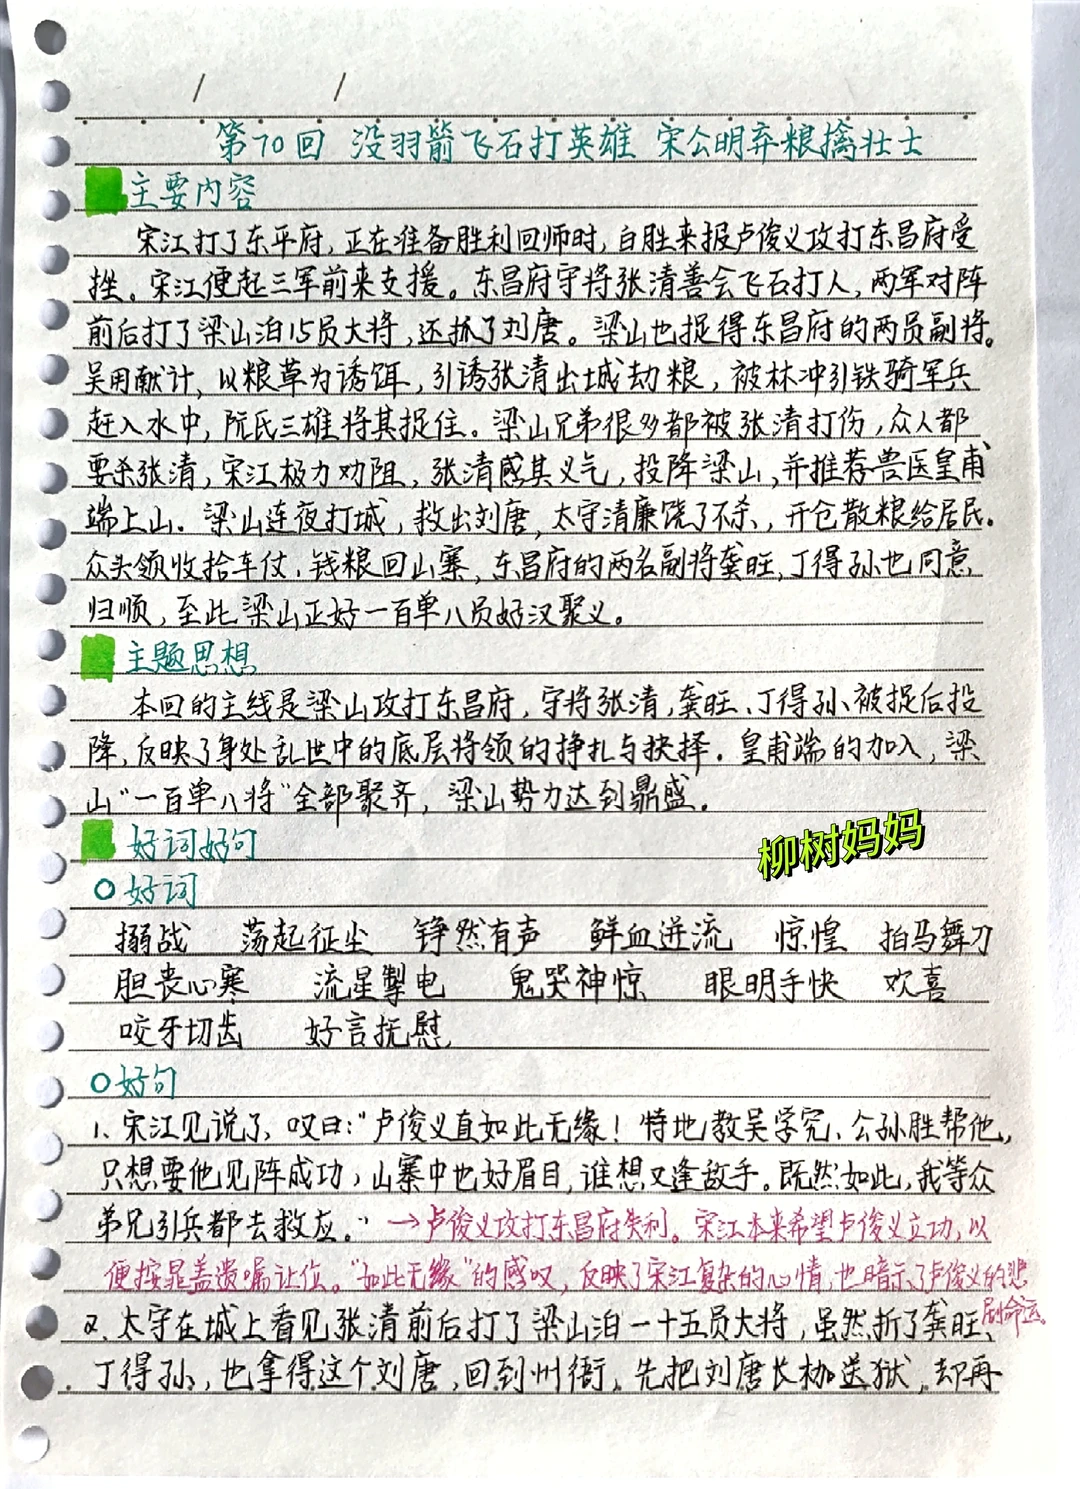 第70回 没羽箭飞石打英雄 宋公明弃粮擒壮士
主要内容
宋江打了东平府,正在准备胜利回师时,白胜来报卢俊义攻打东昌府受
挫。宋江便起三军前来支援。东昌府守将张清善会飞石打人,两军对阵
前后打了梁山泊15员大将,还抓了刘唐。梁山也捉得东昌府的两员副将。
吴用献计,以粮草为诱饵,引诱张清出城劫粮,被林冲引铁骑军兵
赶入水中,阮氏三雄将其捉住。梁山兄弟很多都被张清打伤,众人都
要杀张清,宋江极力劝阻,张清感其义气,投降梁山,并推荐兽医皇甫
端上山。梁山连夜打城,救出刘唐,太守清廉饶了不杀,开仓散粮给居民。
众头领收拾车仗、钱粮回山寨,东昌府的两名副将龚旺、丁得孙也同意
归顺,至此梁山正好一百单八员好汉聚义。
主题思想
本回的主线是梁山攻打东昌府,守将张清,龚旺、丁得孙被捉后投
降,反映了身处乱世中的底层将领的挣扎与抉择。皇甫端的加入,梁
山“一百单八将”全部聚齐,梁山势力达到鼎盛。
好词好句
柳树妈妈
○好词
搦战 荡起征尘 铮然有声 鲜血迸流 惊惶 拍马舞刀
胆丧心寒 流星掣电 鬼哭神惊 眼明手快 欢喜
咬牙切齿 好言抚慰
○好句
1、宋江见说了,叹曰:“卢俊义直如此无缘!特地教吴学究、公孙胜帮他,
只想要他见阵成功,山寨中也好眉目,谁想又逢敌手。既然如此,我等众
弟兄引兵都去救应。”→卢俊义攻打东昌府失利。宋江本来希望卢俊义立功,以
便按晁盖遗嘱让位。“如此无缘”的感叹,反映了宋江复杂的心情,也暗示了卢俊义的悲
剧命运。
2、太守在城上看见张清前后打了梁山泊一十五员大将,虽然折了龚旺、
丁得孙,也拿得这个刘唐,回到州衙,先把刘唐长枷送狱,却再